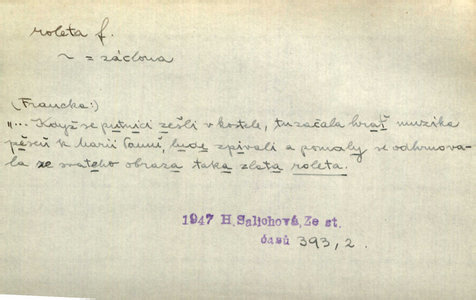 roleta f.
~ = záclona
(Francka:)
"... Když se putnici zešli v kostele, tu začala hrať muzika
pěsču k Marii Pannu, lude zpivali a pomaly se odhrnova-
la ze svateho obraza taka zlata roleta.
1947 H. Salichová, Ze st.
časů 393, 2.